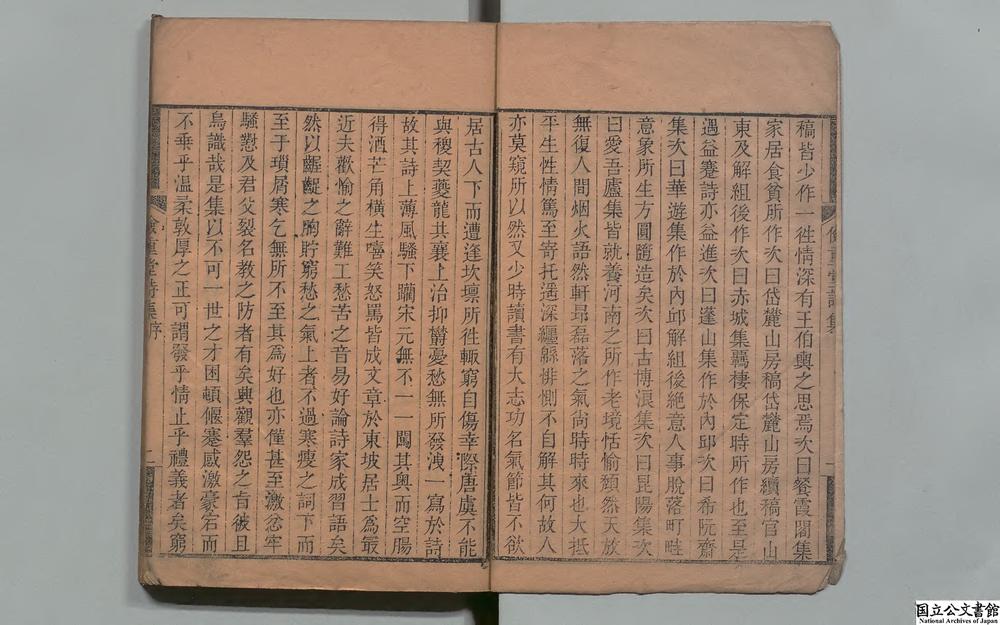 稿皆少作一徃情深有王伯輿之思焉次曰餐霞閣集
家居食貧所作次曰岱麓山房稿岱麓山房續稿官山
東及解組後作次曰赤城集羈棲保定時所作也至是
遇益蹇詩亦益進次曰蓬山集作於內邱次曰希阮齋
集次曰華遊集作於內邱解組後絶意人事脫落町畦
意象所生方圓隨造矣次曰古博浪集次曰昆陽集次
曰愛吾廬集皆就養河南之所作老境恬愉頹然天放
無復人間烟火語然軒昻磊落之氣尙時時來也大抵
平生性情篤至寄托遥深纒緜悱惻不自解其何故人
亦莫窺所以然又少時讀書有大志功名氣節皆不欲
居古人下而遭逢坎壈所徃輙窮自傷幸際唐虞不能
與稷契夔龍共襄上治抑欝憂愁無所發洩一寓於詩
故其詩上薄風騷下躪宋元無不一一闖其奥而空腸
得酒芒角橫生嘻笑怒罵皆成文章於東坡居士爲最
近夫歡愉之辭難工愁苦之音易好論詩家成習語矣
然以齷齪之胸貯窮愁之氣上者不過寒瘦之詞下而
至于瑣屑寒乞無所不至其爲好也亦僅甚至激忿牢
騷懟及君父裂名教之防者有矣興觀羣怨之旨彼且
烏識哉是集以不可一世之才困頓偃蹇感激豪宕而
不乖乎溫柔敦厚之正可謂發乎情止乎禮義者矣窮
儉重堂詩集序
二
国立公文書館
National Archives of Japan